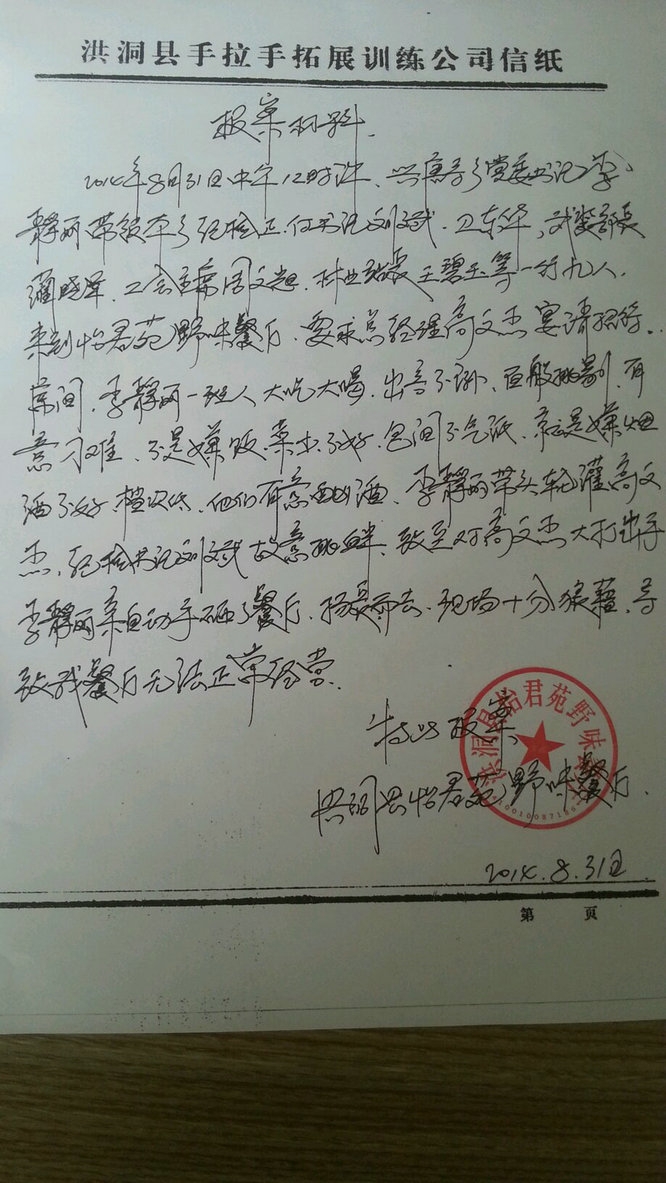 洪洞县手拉手拓展训练公司信纸
报案材料
2014年8月31日中午12时许、兴唐寺乡党委书记李
静丽带领本乡纪检正、付书记刘斌、卫东华、武装部长
晓军、工会主席闫文起、林业站长王碧玉等一行九人、
来到怡君苑野味餐厅、要求总经理高文杰宴请招待.
席间、李静丽一班人大吃大喝、出言不逊、百般挑剔、有
意刁难、不是嫌饭、菜水不好、包间不气派、就是嫌烟
酒不好档次低、他们有意酗酒、李静丽带头轮灌高文
杰、纪检书记刘斌故意挑衅、致至对高文杰大打出手
李静丽亲自动手砸了餐厅、扬长而去、现场十分狼藉、导
致我餐厅无法正常经营、
特此报案
洪洞县怡君苑野味餐厅、
2014.8.31日
洪洞县怡君苑野味
第 页